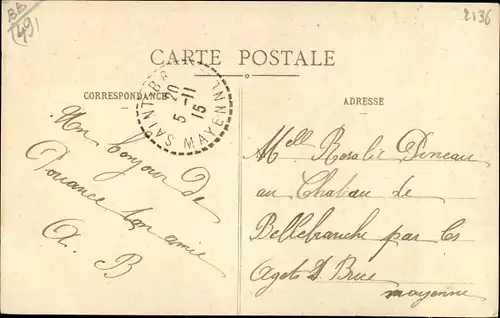 BB
(49)
2136
CARTE POSTALE
CORRESPONDANCE
ADRESSE
SAINT-BR
MAYENNE
20
5-11
15
Un bonjour de
Douance ton amie
A. B
Melle Rosalie Pineau
au Chateau de
Bellebranche par les
Agets St Brice
mayenne